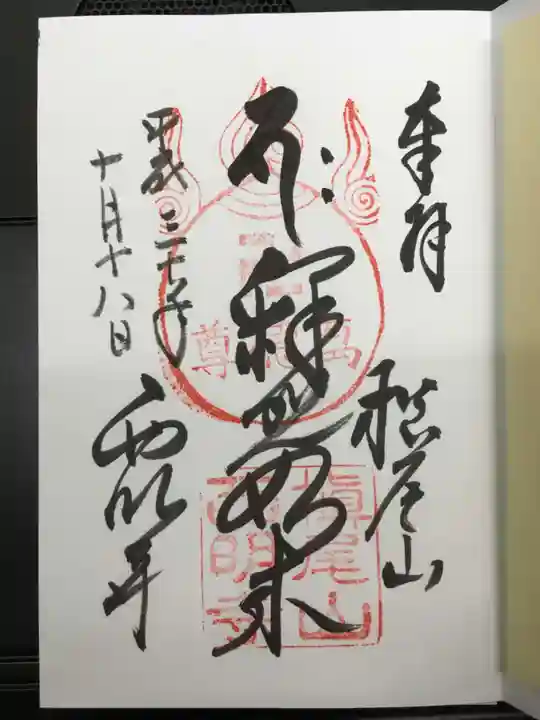 奉拝
槇尾山
釋迦如来
平成三十年
十月十八日
西明寺
槇尾山
西明寺